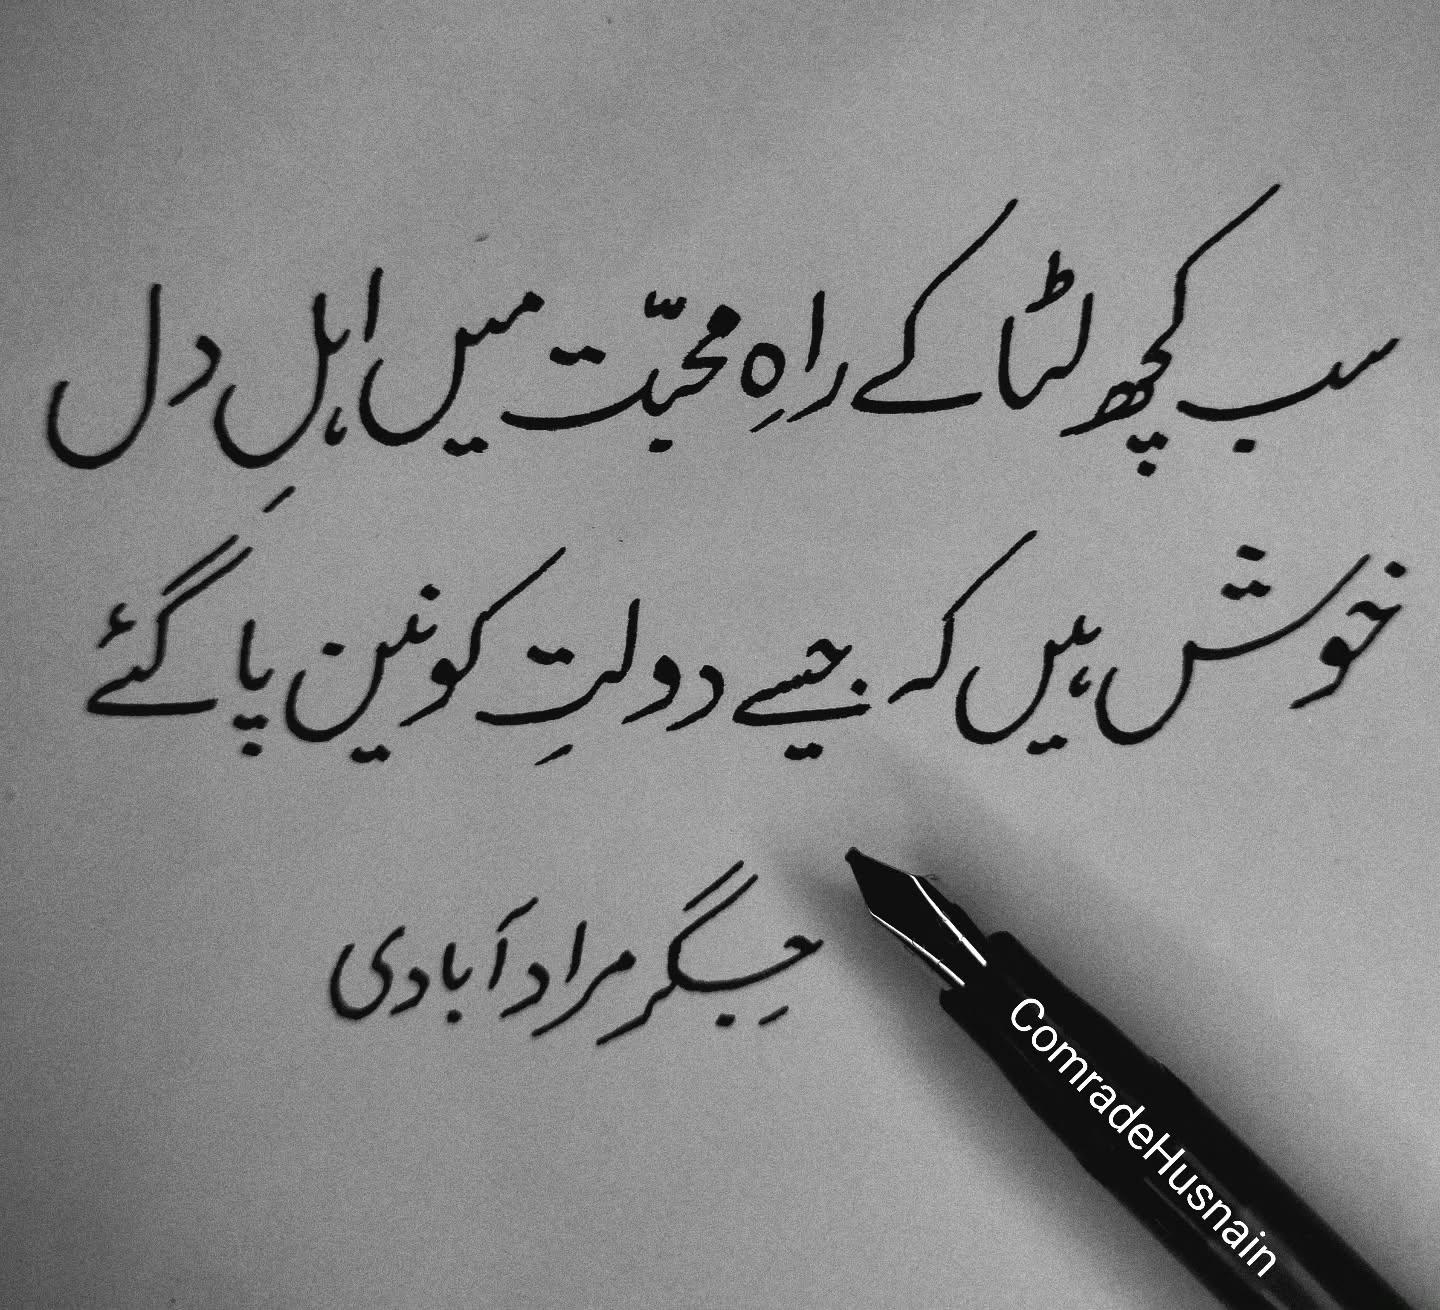 سب کچھ لٹا کے راہِ محبّت میں اہلِ دل
خوش ہیں کہ جیسے دولتِ کونین پا گئے
جِگر مراد آبادی
ComradeHusnain